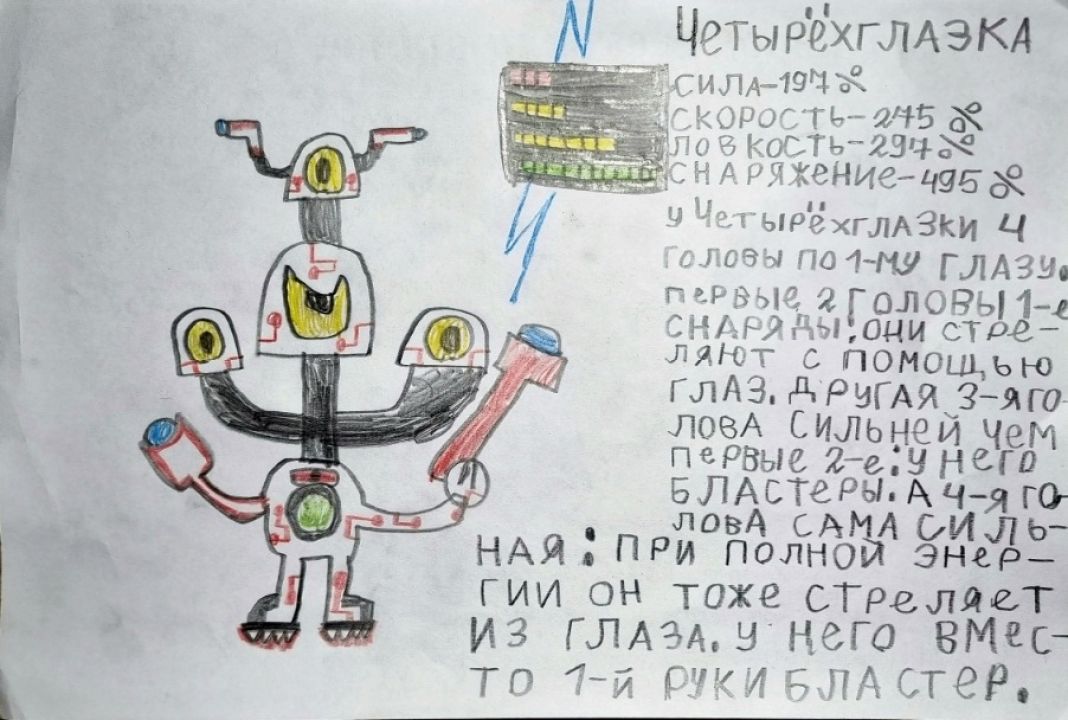 N
Четырёхглазка
сила-197%
скорость-245%
ловкость-297%
снаряжение-495%
у Четырёхглазки 4
головы по 1-му глазу.
первые 2 головы 1-е
снаряды: они стре-
ляют с помощью
глаз. другая 3-я го-
лова сильней чем
первые 2-е: у него
бластеры. А 4-я го-
лова сама силь-
ная: при полной энер-
гии он тоже стреляет
из глаза. у него вмес-
то 1-й руки бластер.